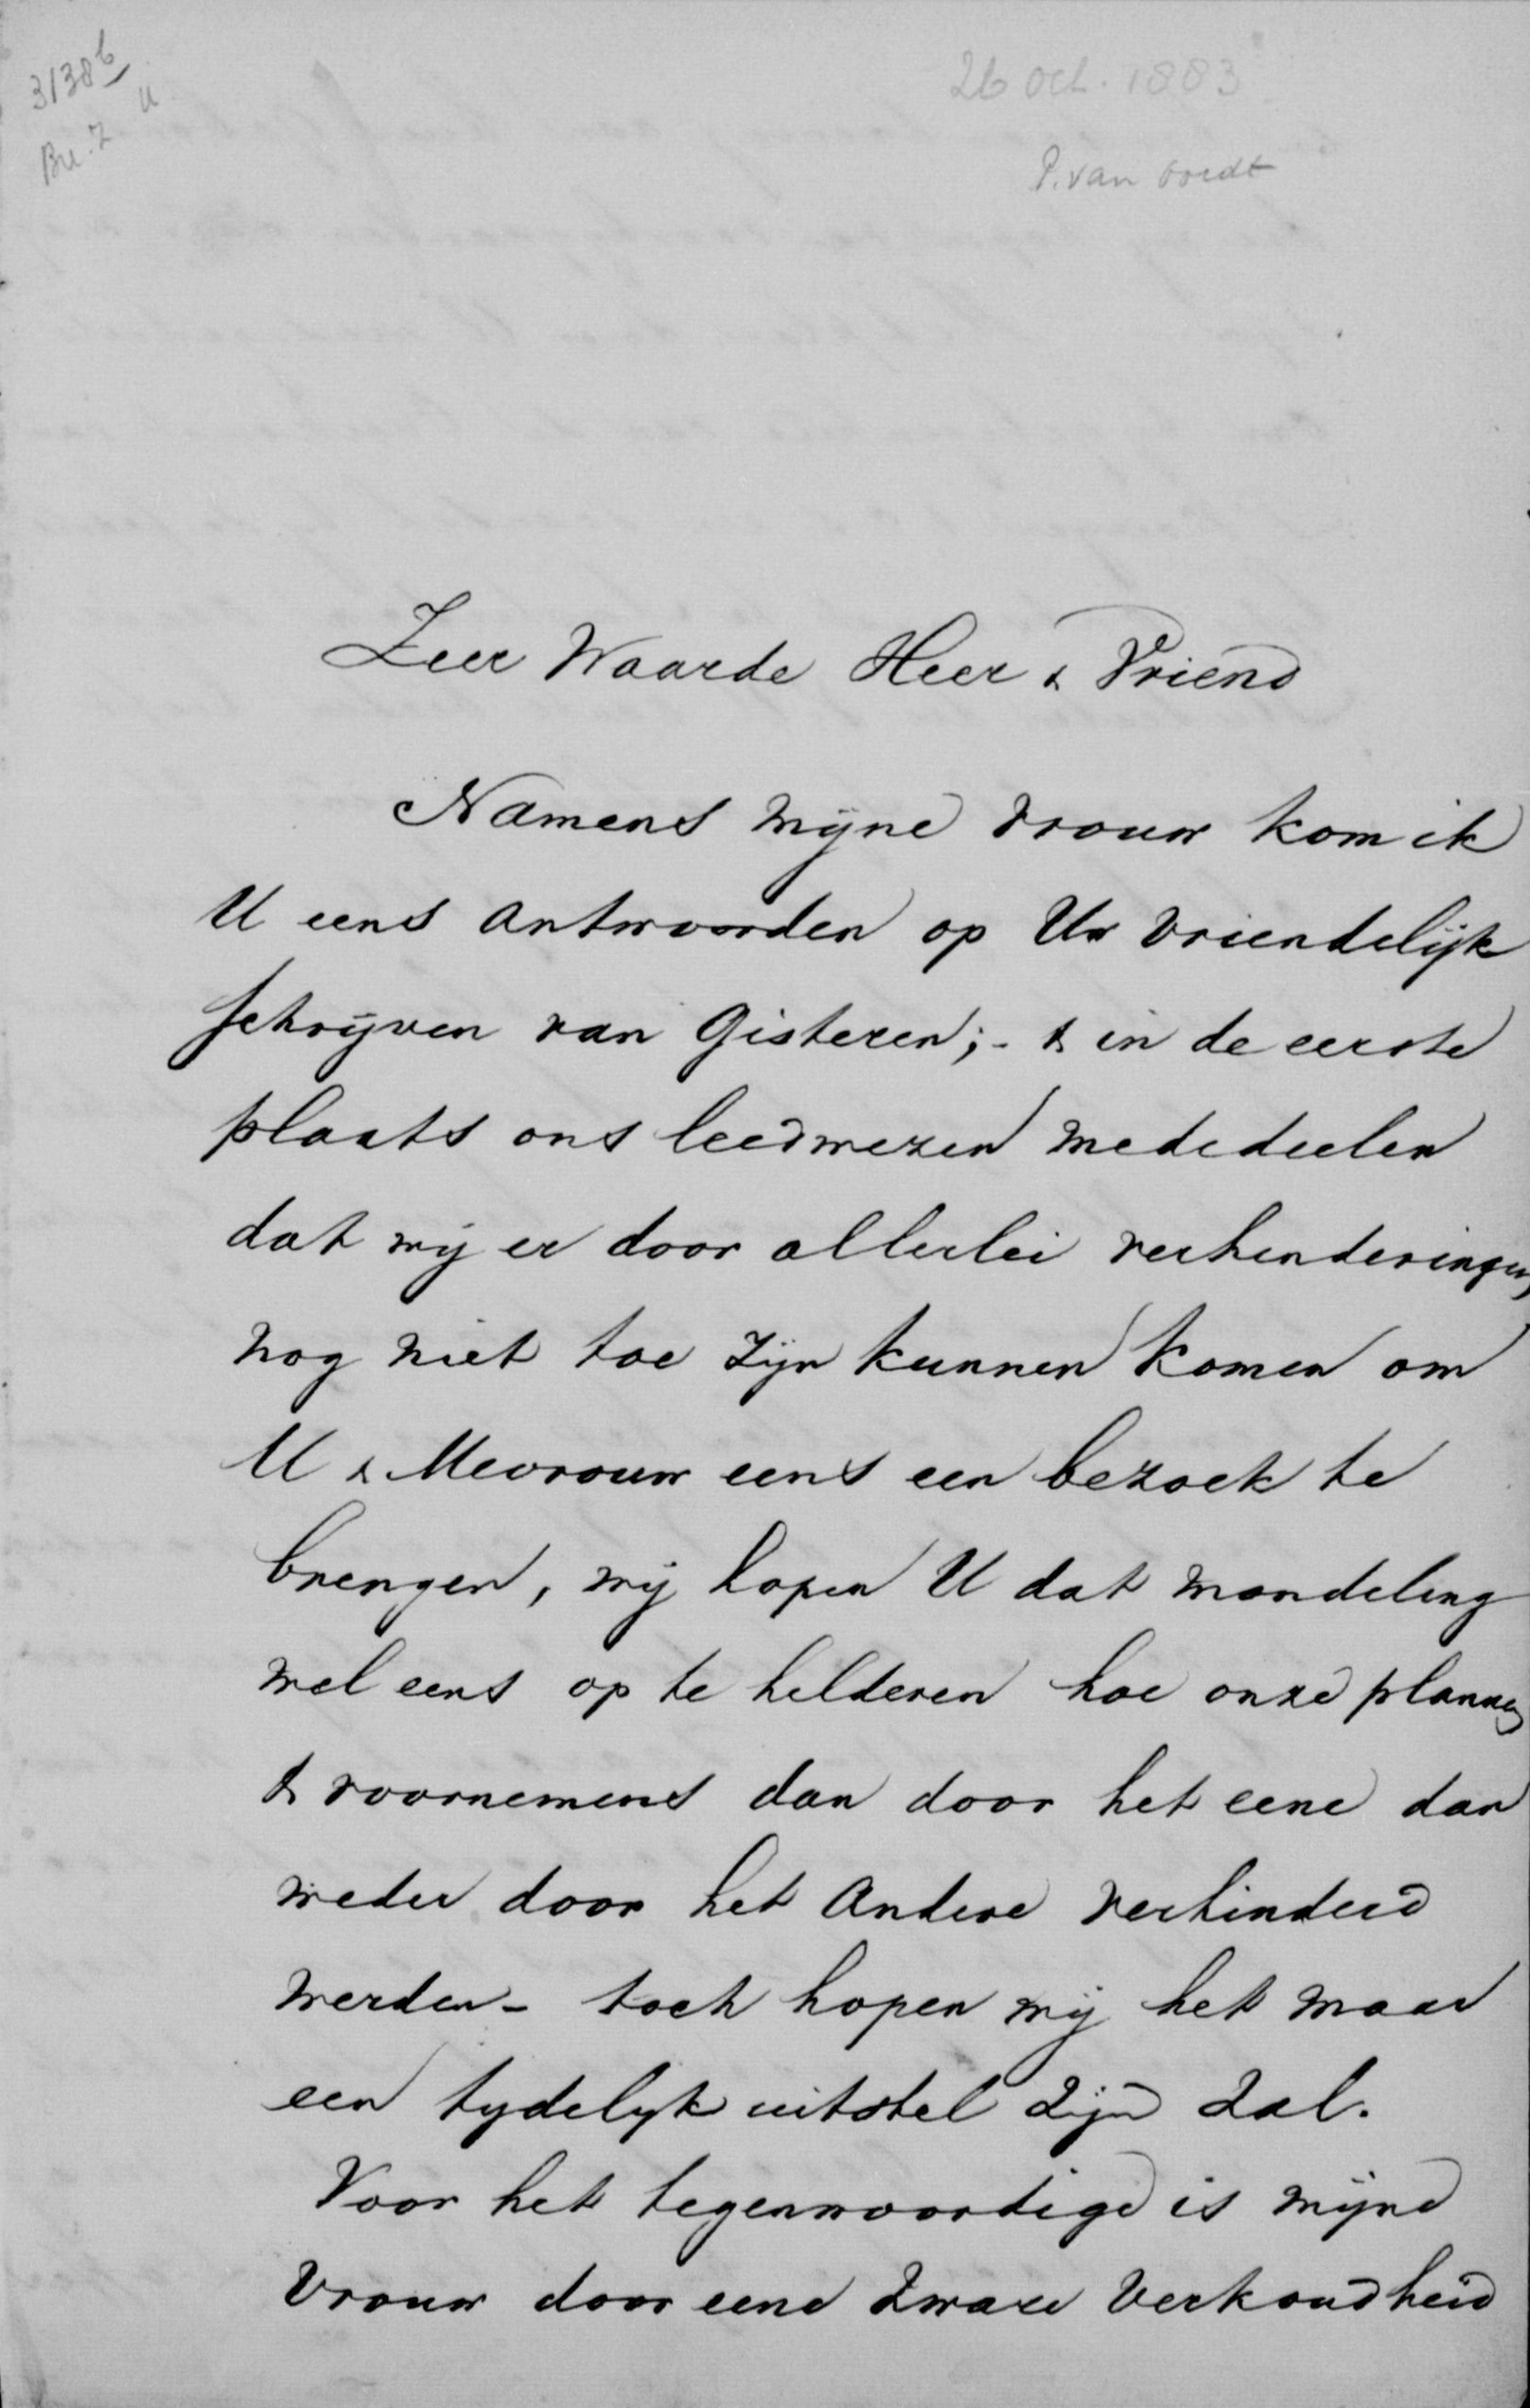 3138b
Bu. 7 u
26 Oct. 1883
P. van Oordt
Zeer Waarde Heer & Vriend
Namens mijne vrouw kom ik
U eens antwoorden op Uw vriendelijk
schrijven van Gisteren; - & in de eerste
plaats ons leedwezen mededeelen
dat wij er door allerlei verhinderingen
nog niet toe zijn kunnen komen om
U & Mevrouw eens een bezoek te
brengen, wij hopen U dat mondeling
wel eens op te helderen hoe onze plannen
& voornemens dan door het eene dan
weder door het andere verhinderd
werden - toch hopen wij het maar
een tydelyk uitstel zijn zal.
Voor het tegenwoordige is mijne
Vrouw door eene zware Verkoudheid